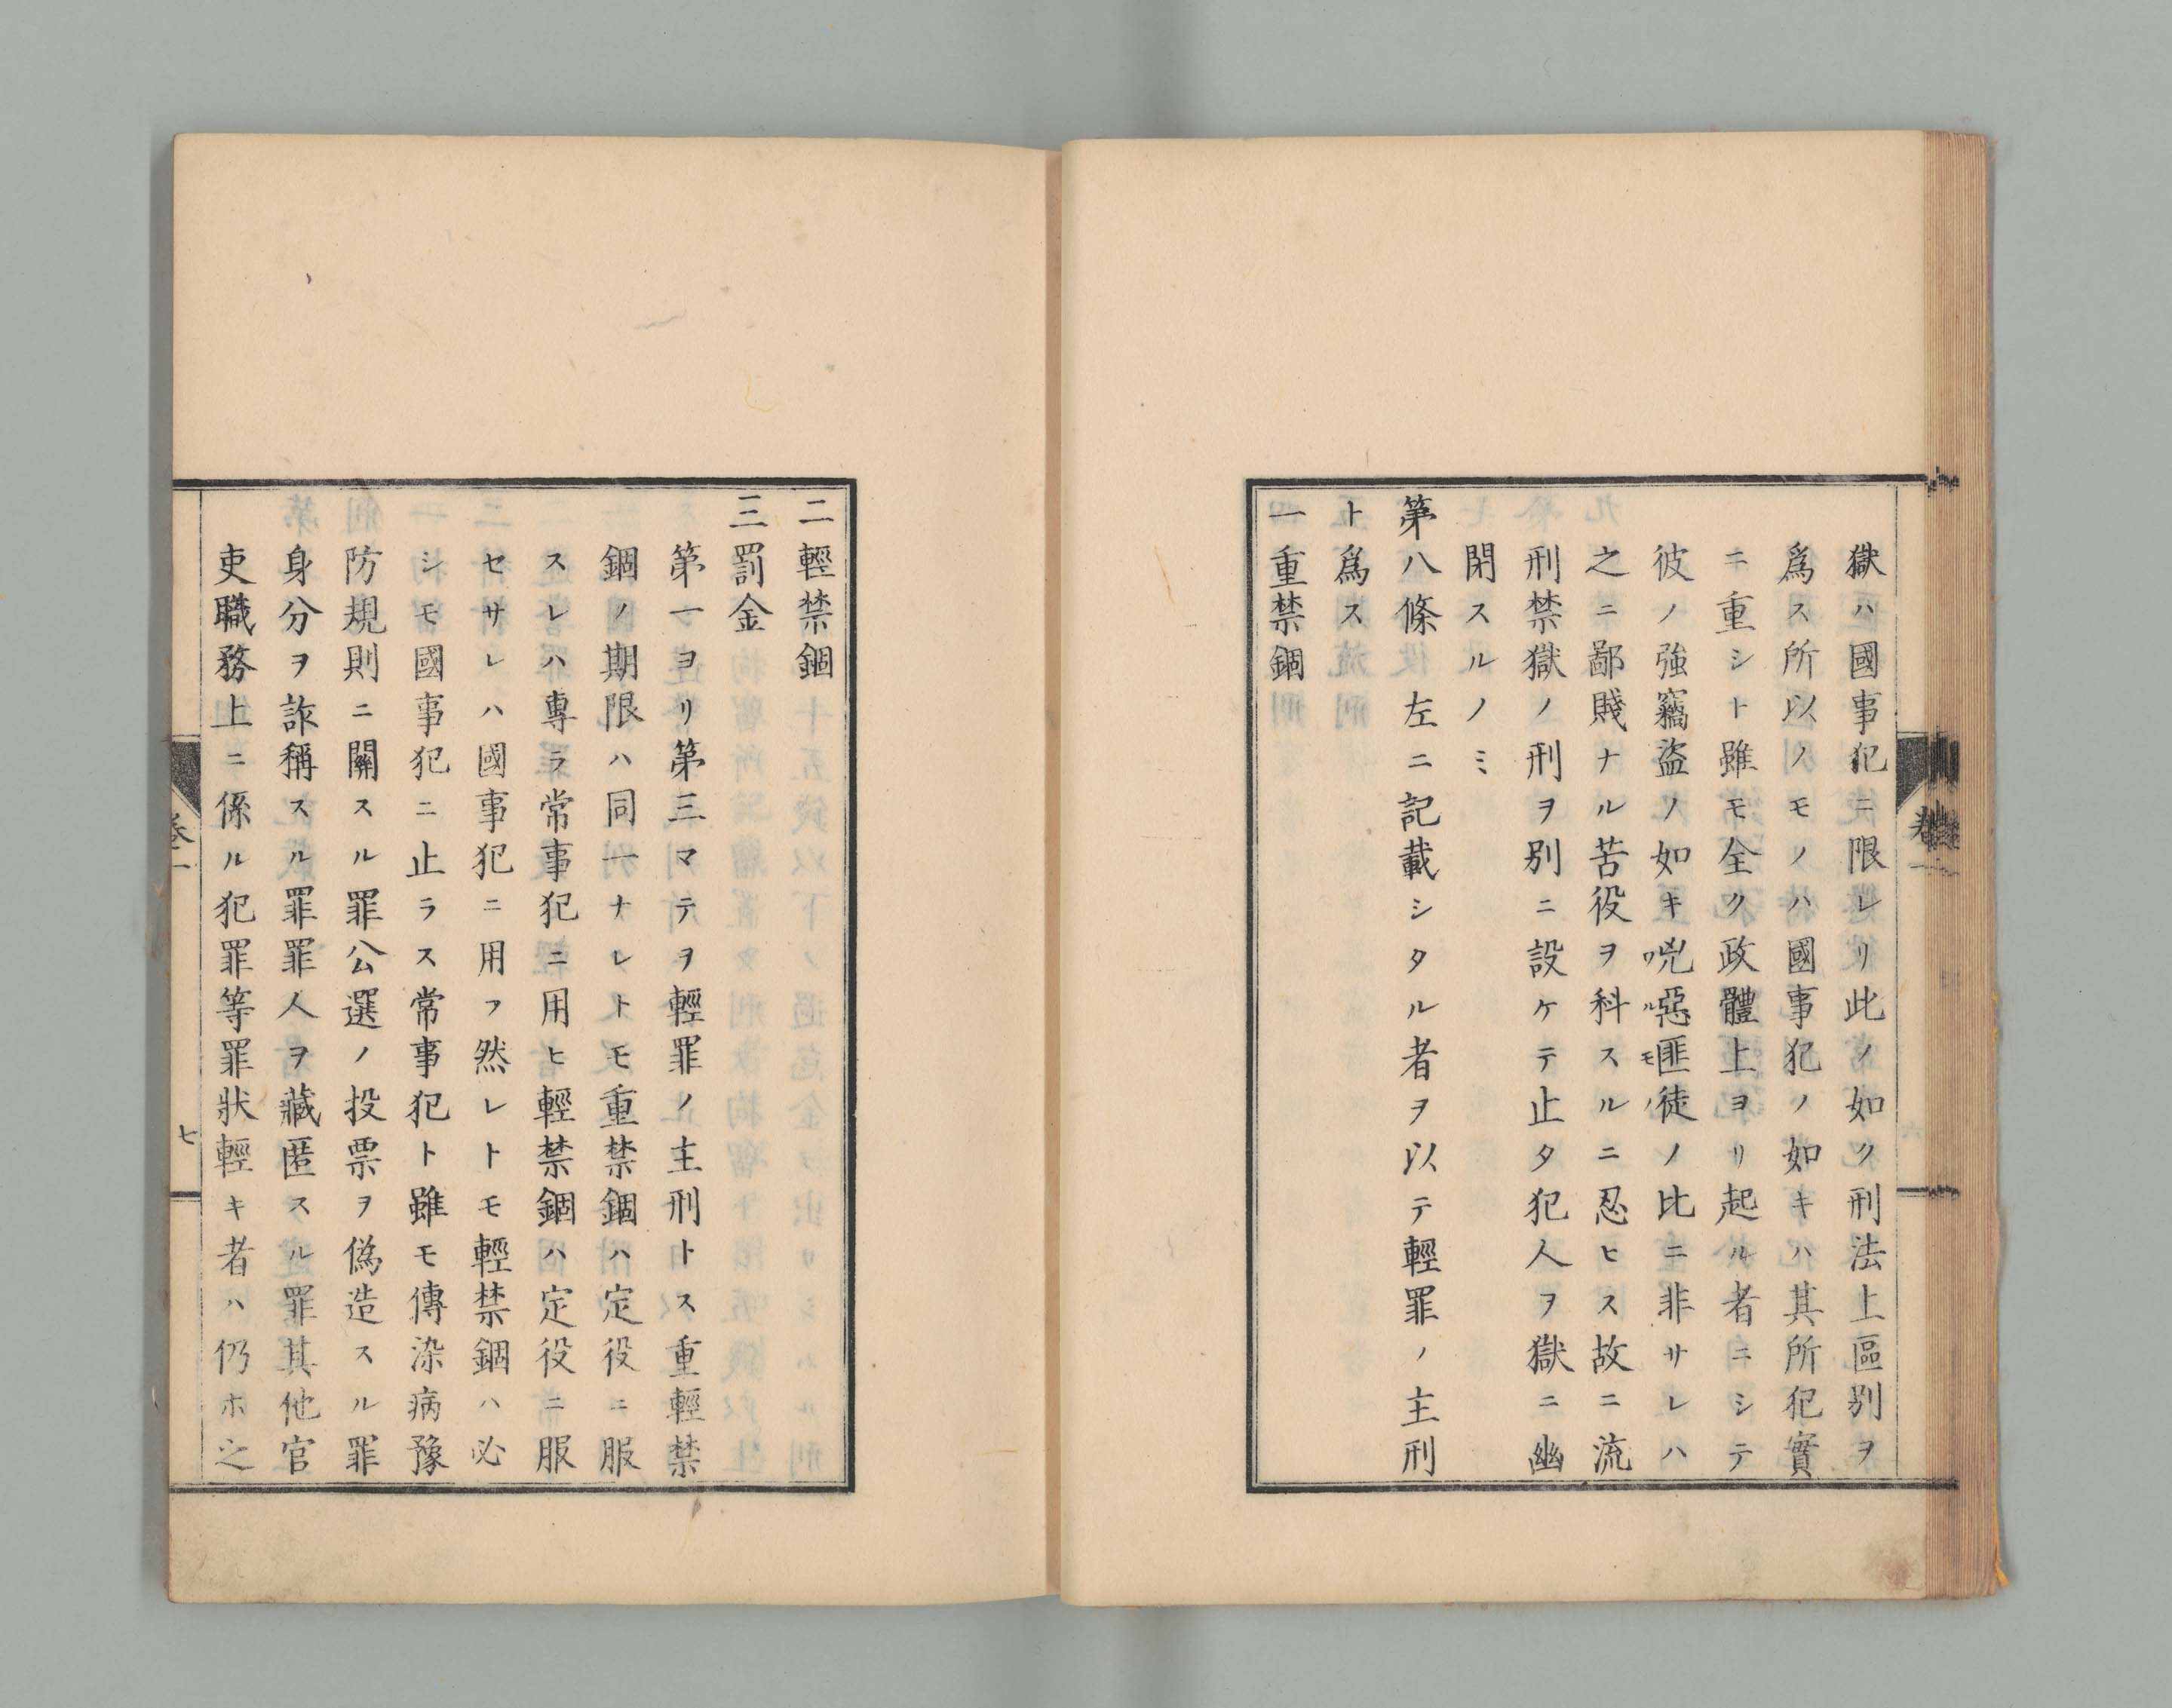 獄ハ國事犯ニ限レリ此ノ如ク刑法上區別ヲ
爲ス所以ノモノハ國事犯ノ如キハ其所犯實
ニ重シト雖モ全ク政體上ヨリ起ル者ニシテ
彼ノ強竊盜ノ如キ兇惡匪徒ノ比ニ非サレハ
ワルモノ
之ニ鄙賤ナル苦役ヲ科スルニ忍ヒス故ニ流
刑禁獄ノ刑ヲ別ニ設ケテ止タ犯人ヲ獄ニ幽
閉スルノミ
第八條 左ニ記載シタル者ヲ以テ輕罪ノ主刑
ト爲ス
一重禁錮
二輕禁錮
三罰金
第一ヨリ第三マテヲ輕罪ノ主刑トス重輕禁
錮ノ期限ハ同一ナレトモ重禁錮ハ定役ニ服
スレハ專ラ常事犯ニ用ヒ輕禁錮ハ定役ニ服
セサレハ國事犯ニ用フ然レトモ輕禁錮ハ必
シモ國事犯ニ止ラス常事犯ト雖モ傳染病豫
防規則ニ關スル罪公選ノ投票ヲ偽造スル罪
身分ヲ詐稱スル罪罪人ヲ藏匿スル罪其他官
吏職務上ニ係ル犯罪等罪狀輕キ者ハ仍ホ之
卷一
七